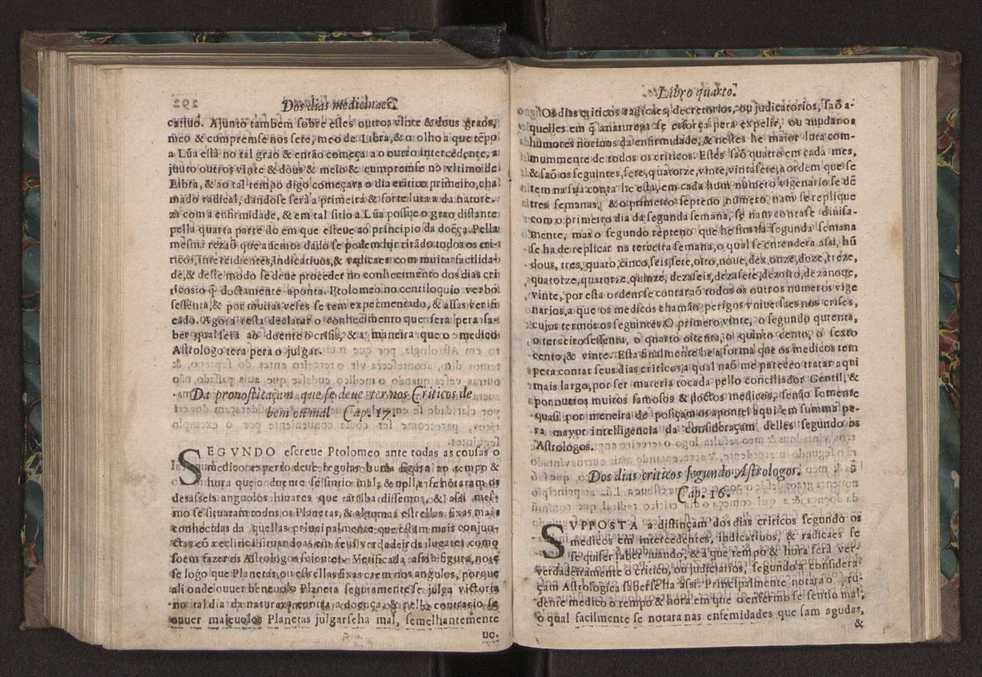 292
Dos dias medicinaes.
catiuo. Ajunto tambem sobre estes outros vinte & dous graos,
meo & cumpremse nos sete, meo de Libra, & o olho a que tẽpo
a Lũa està no tal grao & então começa a o outro intercedẽte, a
junto outros vinte & dous & meio & cumpremse no vltimo de
Libra, & ao tal tempo digo começara o dia critico primeiro, cha
mado radical, dandose será a primeira & forte luta a da nature-
za com a enfirmidade, & em tal sitio a Lũa possue o grao distante
pella quarta parte do em que esteue ao principio da doẽça. Pella
mesma rezaõ que auemos dado se podem hir tirãdo todos os cri-
ticos, intercidentes, indicatiuos, & radicaes com muita facilida-
de, & deste modo se deue proceder no conhecimento dos dias cri
ticos o q̃ doctamente aponta Ptolomeo no centiloquio verbo
sessenta, & por muitas veses se tem experimentado, & assas verifi
cado. Agora resta declarar o conhecimento que sera pera sa-
ber qual sera ao doente o crisis, & a maneira que o medico
Astrologo tera pera o julgar.
Da pronosticaçam, que se deue ter nos Criticos de
bem ou mal Cap. 17.
SEGVNDO escreue Ptolomeo ante todas as cousas o
medico experto deue regolar huma figura ao tempo &
hura que o doente se sintio mal, & nella se notaram os
desasseis angulos lunares que tambẽ dissemos, & assi mes-
mo se situaram todos os Planetas, & algumas estrellas fixas mais
conhecidas da quellas principalmente que estam mais conjun-
ctas cõ a eclitica situandoas em seus verdadeiros lugares como
soem fazer os Astrologos scientes. Verificada assi a figura, note
se logo que Planetas, ou estrellas fixas crem nos angulos, porque
ali onde ouuer beneuolo Planeta seguramente se julga victoria
no tal dia da natureza contra a doença, & pello contrario se
ouuer maleuolos Planetas julgarseha mal, semelhantemente
uc.
Libro quarto.
Os dias criticos radicaes, decretorios, ou judicatorios, saõ a-
quelles em q̃ a natureza se esforça pera expelir, ou mudar os
humores nociuos da enfirmidade, & nestes he maior luta com-
mummente de todos os criticos. Estes saõ quatro em cada mes,
& saõ os seguintes, sete, quatorze, vinte, vinta sete, a ordem que se
tem na sua conta he esta, em cada hum numero vigenario se dẽ
tres semanas, & o primeiro septeno numero nam se replique
com o primeiro dia da segunda semana, se nam contase diuisa-
mente, mas o segundo repteno que he fim da segunda semana
se ha de replicar na terceira semana, o qual se entendera assi, hũ
dous, tres, quatro, cinco, seis, sete, oito, noue, dex, onze, doze, treze,
quatorze, quatorze, quinze, dezaseis, dezasete, dezoito, dezanoue,
vinte, por esta ordem se contaraõ todos os outros numeros vige
narios, a que os medicos chamão perigos vniuersaes nos crises,
cujos termos os seguintes. O primero vinte, o segundo qurenta,
o terceiro sessenta, o quarto oitenta, o quinto cento, o sexto
cento, & vinte. Esta finalmente he a forma que os medicos tem
pera contar seus dias criticos, a qual naõ me pareceo tratar aqui
mais largo, por ser materia tocada pello conciliador Gentil, &
por outros muitos famosos & doctos medicos, senão somente
quasi por meneira de poliçam os apontei aqui em summa pe-
ra mayor intelligencia da consideraçam delles segundo os
Astrologos.
Dos dias criticos segundo Astrologos.
Cap. 16.
SVPPOSTA a distinçam dos dias criticos segundo os
medicos em intercedentes, indicatiuos, & radicaes se
se quiser saber quando, & a que tempo & hora será ver-
verdadeiramente o critico, ou judiciario, segundo a considera
çam Astrologica saberseha assi. Principalmente notara o pru-
dente medico o tempo & hora em que o enfermo se sentio mal,
o qual facilmente se notara nas enfemidades que sam agudas,
&